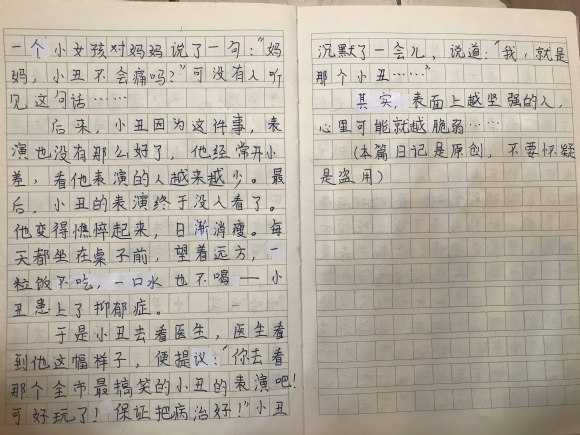 一个小女孩对妈妈说了一句：“妈
妈，小丑不会痛吗？”可没有人听
见这句话……
后来，小丑因为这件事，表
演也没有那么好了，他经常开小
差，看他表演的人越来越少。最
后，小丑的表演终于没人看了。
他变得憔悴起来，日渐消瘦。每
天都坐在桌子前，望着远方，一
粒饭不吃，一口水也不喝——小
丑患上了抑郁症。
于是小丑去看医生，医生看
到他这幅样子，便提议：“你去看
那个全市最搞笑的小丑的表演吧！
可好玩了！保证把病治好！”小丑
沉默了一会儿，说道：“我，就是
那个小丑……”
其实，表面上越坚强的人，
心里可能就越脆弱……
（本篇日记是原创，不要怀疑
是盗用）